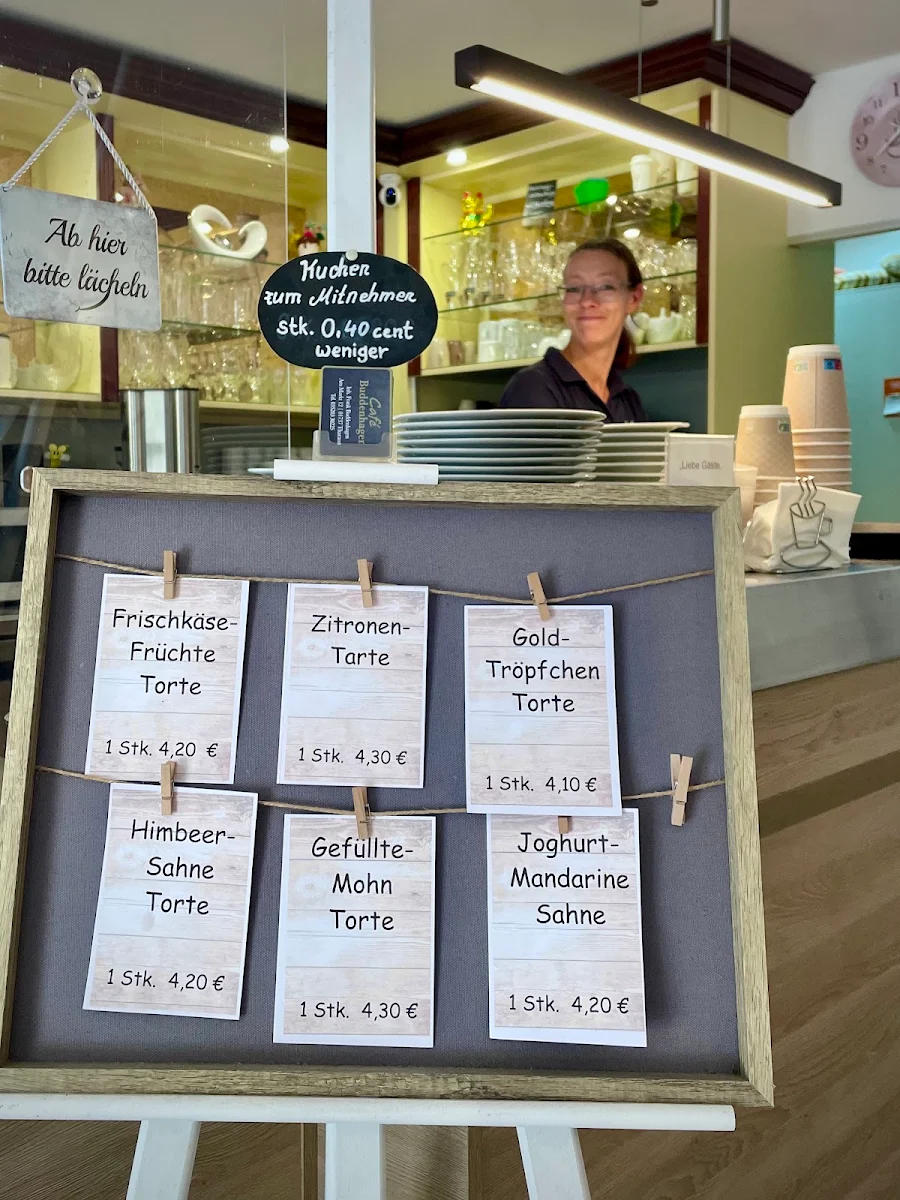 Ab hier
bitte lächeln
Kuchen
zum Mitnehmen
stk. 0,40 cent
weniger
Café
Buddenhagen
„Liebe Gäste,
Frischkäse-
Früchte
Torte
1 Stk. 4,20 €
Zitronen-
Tarte
1 Stk. 4,30 €
Gold-
Tröpfchen
Torte
1 Stk. 4,10 €
Himbeer-
Sahne
Torte
1 Stk. 4,20 €
Gefüllte-
Mohn
Torte
1 Stk. 4,30 €
Joghurt-
Mandarine
Sahne
1 Stk. 4,20 €